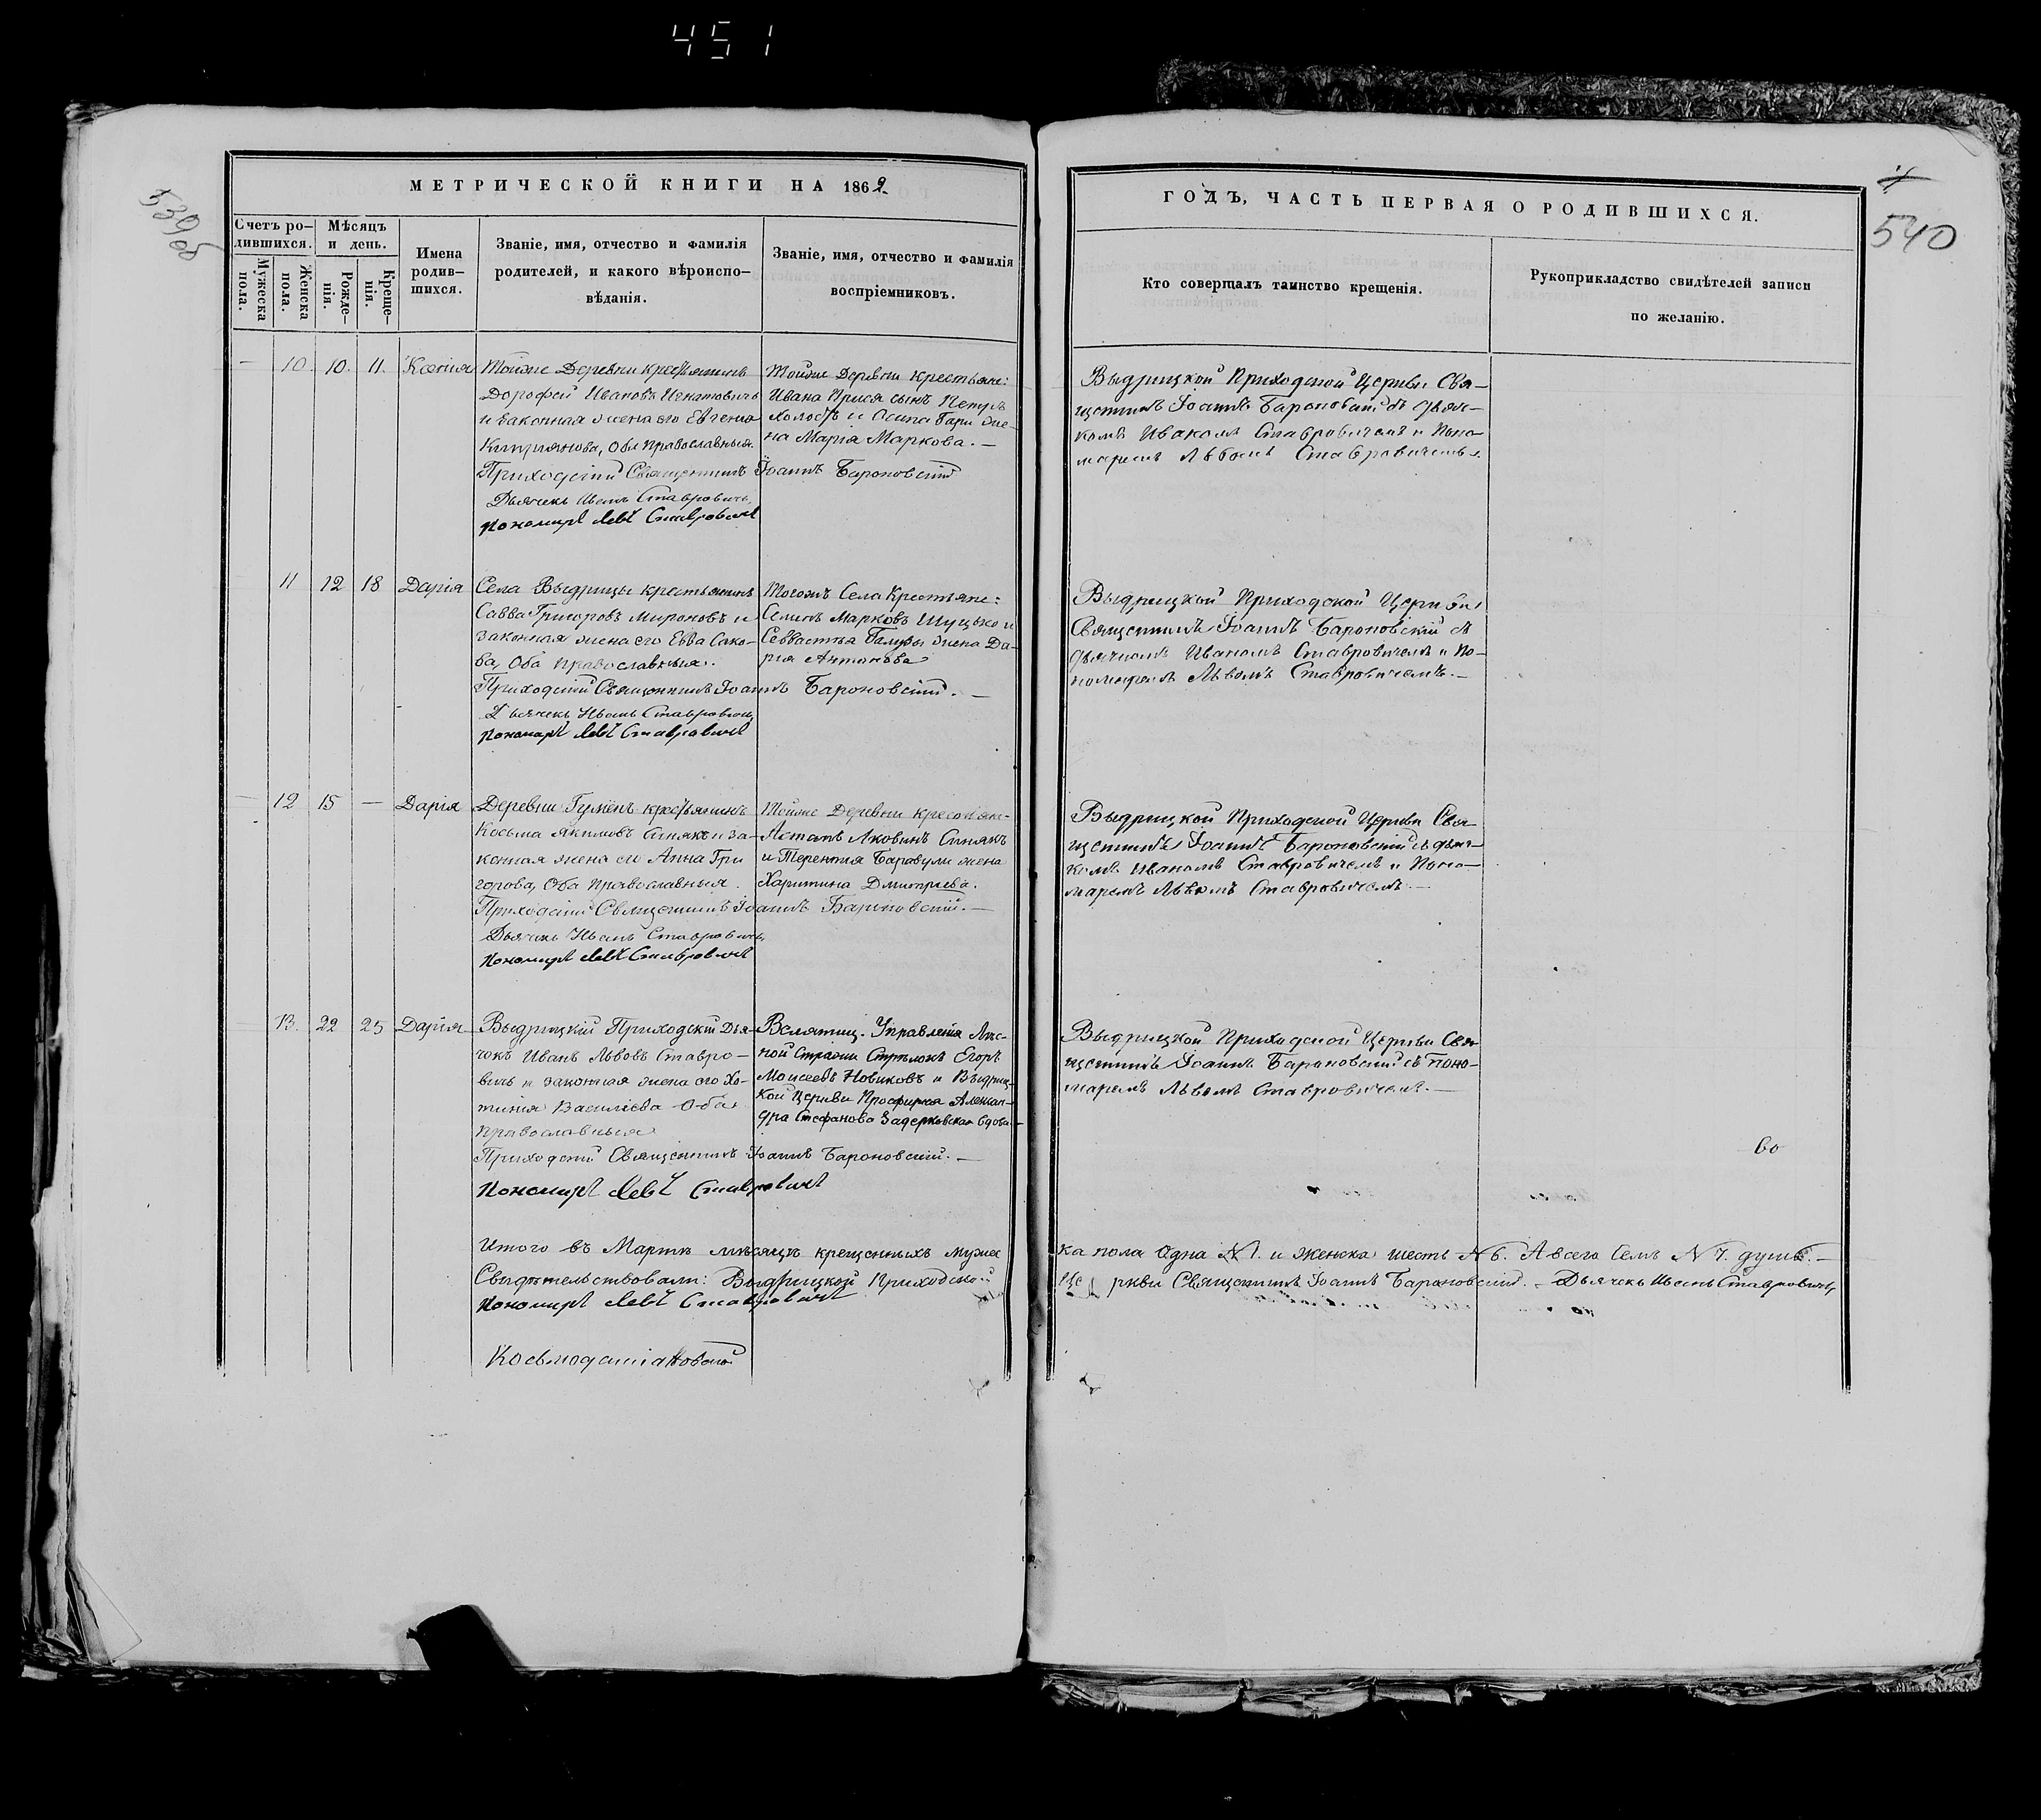 451
МЕТРИЧЕСКОЙ КНИГИ НА 1862
539об
Счетъ ро-
дившихся.
Мѣсяцъ
и день.
Мужеска
пола.
Женска
пола.
Рожде-
нія.
Креще-
нія.
Имена
родив-
шихся.
Званіе, имя, отчество и фамилія
родителей, и какого вѣроиспо-
вѣданія.
Званіе, имя, отчество и фамилія
воспріемниковъ.
— 10. 10. 11. Ксенія
Тойже Деревни крестьянинъ
Дорофей Ивановъ Игнатовичъ
и законная жена его Евгенія
Киприянова, Оба православныя.
Приходскій Священникъ Іоаннъ Бароновскій
Дьячекъ Иванъ Ставровичъ
Пономарь Левъ Ставровичъ
Тойже Деревни крестьяне:
Ивана сынъ
холостъ и Осипа же-
на Марія Маркова. —
11 12 18 Дарія
Села Выдрицы крестьянинъ
Савва Григоровъ Мироновъ и
законная жена его Евва Сако-
ва, Оба православныя.
Приходскій Священникъ Іоаннъ Бароновскій. —
Дьячекъ Иванъ Ставровичъ
Пономарь Левъ Ставровичъ
Тогожъ Села Крестьяне:
Марковъ и
жена Да-
рія Антонова
— 12 15 — Дарія
Деревни Гуменъ крестьянинъ
Косьма Якимовъ Синякъ и за-
конная жена его Анна Гри
горова, Оба православныя.
Приходскій Священникъ Іоаннъ Бароновскій. —
Дьячекъ Иванъ Ставровичъ
Пономарь Левъ Ставровичъ
Тойже Деревни крестьяне-
Синякъ
и Терентія жена
Харитина Дмитріева.
13. 22 25 Дарія
Выдрицкій Приходскій Дья-
чокъ Иванъ Львовъ Ставро-
вичъ и законная жена его Хо-
тинія Василіева Оба
православныя
Приходскій Священникъ Іоаннъ Бароновскій. —
Пономарь Левъ Ставровичъ
Управленія Лѣс-
ной Стражи Стрѣлокъ Егоръ
Моисеевъ Новиковъ и Выдриц-
кой Церкви Просфирня Алексан-
дра Стефанова вдова —
Итого въ Мартѣ мѣсяцѣ крещенныхъ мужес
Свидѣтельствовали: Выдрицкой Приходской
Пономарь Левъ Ставровичъ
Космодаміановской
ГОДЪ, ЧАСТЬ ПЕРВАЯ О РОДИВШИХСЯ.
540
Кто совершалъ таинство крещенія.
Рукоприкладство свидѣтелей записи
по желанію.
Выдрицкой Приходской Церкви Свя-
щенникъ Іоаннъ Бароновскій съ дьяч-
комъ Иваномъ Ставровичемъ и Поно-
маремъ Львомъ Ставровичемъ.
Выдрицкой Приходской Церкви
Священникъ Іоаннъ Бароновскій съ
дьячкомъ Иваномъ Ставровичемъ и По-
номаремъ Львомъ Ставровичемъ. —
Выдрицкой Приходской Церкви Свя-
щенникъ Іоаннъ Бароновскій съ дьяч-
комъ Иваномъ Ставровичемъ и Поно-
маремъ Львомъ Ставровичемъ. —
Выдрицкой Приходской Церкви Свя-
щенникъ Іоаннъ Бароновскій съ Поно-
маремъ Львомъ Ставровичемъ. —
во
ка пола Одна N 1. и Женска шесть N 6. А всего Семь N 7. душъ. —
Церкви Священникъ Іоаннъ Бароновскій. — Дьячекъ Иванъ Ставровичъ